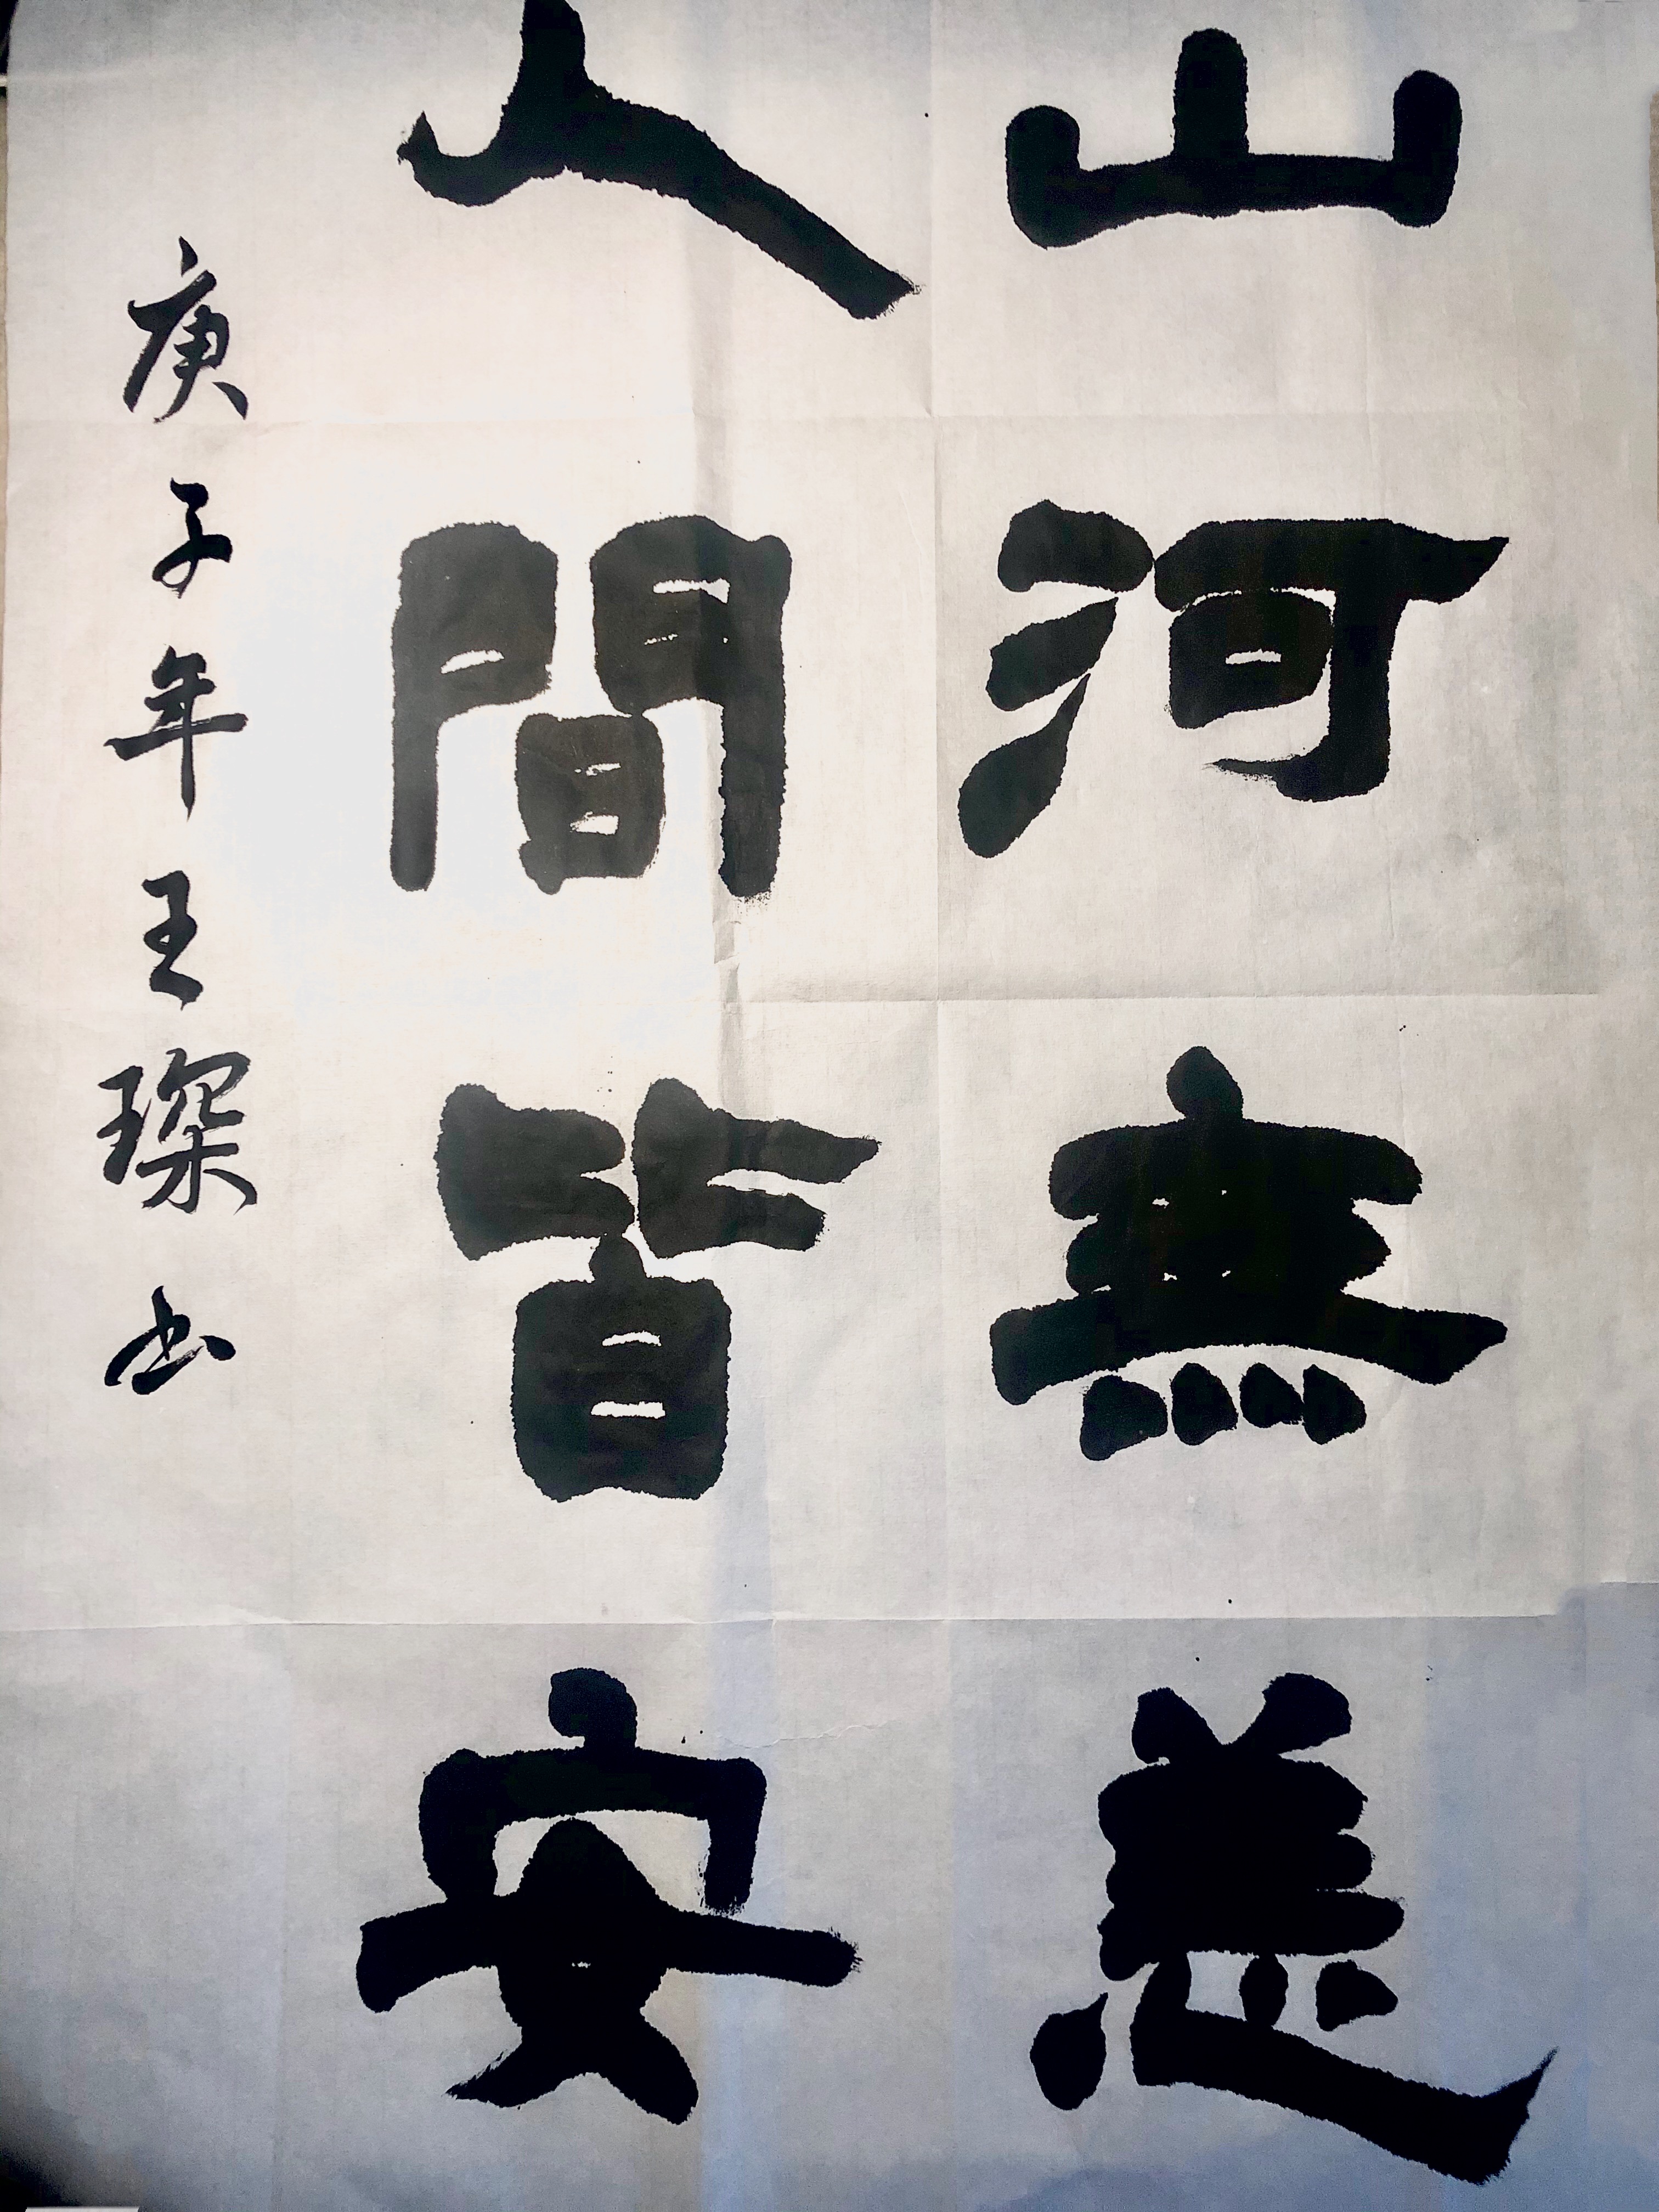 山河無恙
人間皆安
庚子年王琛书